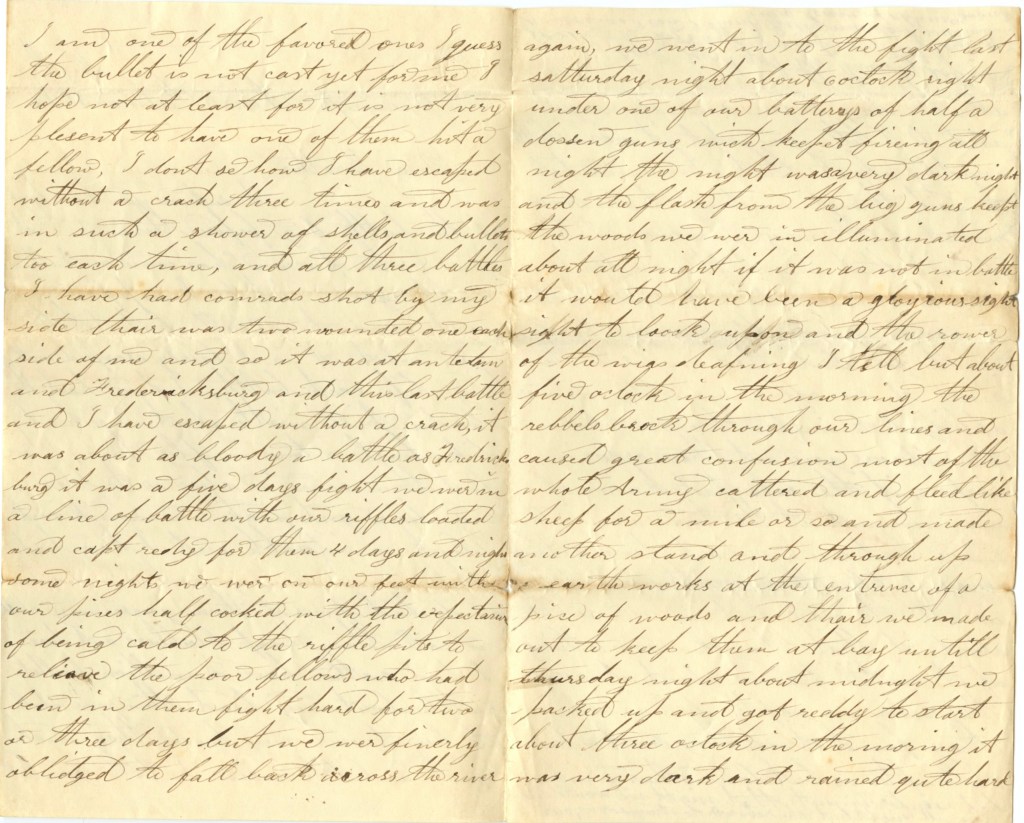 I am one of the favored ones I guess
the bullet is not cast yet for me I
hope not at least for it is not very
plesent to have one of them hit a
fellow, I dont se how I have escaped
without a crack three times and was
in such a shower of shells and bullets
too each time, and all three battles
I have had comrads shot by my
side thair was two wounded one each
side of me and so it was at antetam
and Fredericksburg and this last battle
and I have escaped without a crack, it
was about as bloody a battle as Fredricks
burg it was a five days fight we wer in
a line of battle with our riffles loaded
and capt redy for them 4 days and nights
some nights we wer on our feet with
our pises half cocked with the expectation
of being cald to the riffle pits to
releave the poor fellows who had
been in them fight hard for two
or three days but we wer finerly
oblidged to fall back across the river
again, we went in to the fight last
satturday night about 6 oclock right
under one of our batterys of half a
dossen guns wich keepet fireing all
night the night was a very dark night
and the flash from the big guns keept
the woods we wer in illuminated
about all night if it was not in battle
it would have been a gloyrious sight
sight to loock upon and the rower
of the wigs deafining I tell but about
five oclock in the morning the
rebbels brock through our lines and
caused great confusion most of the
whole Army cattered and fleed like
sheep for a mile or so and made
another stand and through up
earth works at the entrense of a
pise of woods and thair we made
out to keep them at bay untill
thursday night about midnght we
packed up and got reddy to start
about three oclock in the moring it
was very dark and rained qute hard